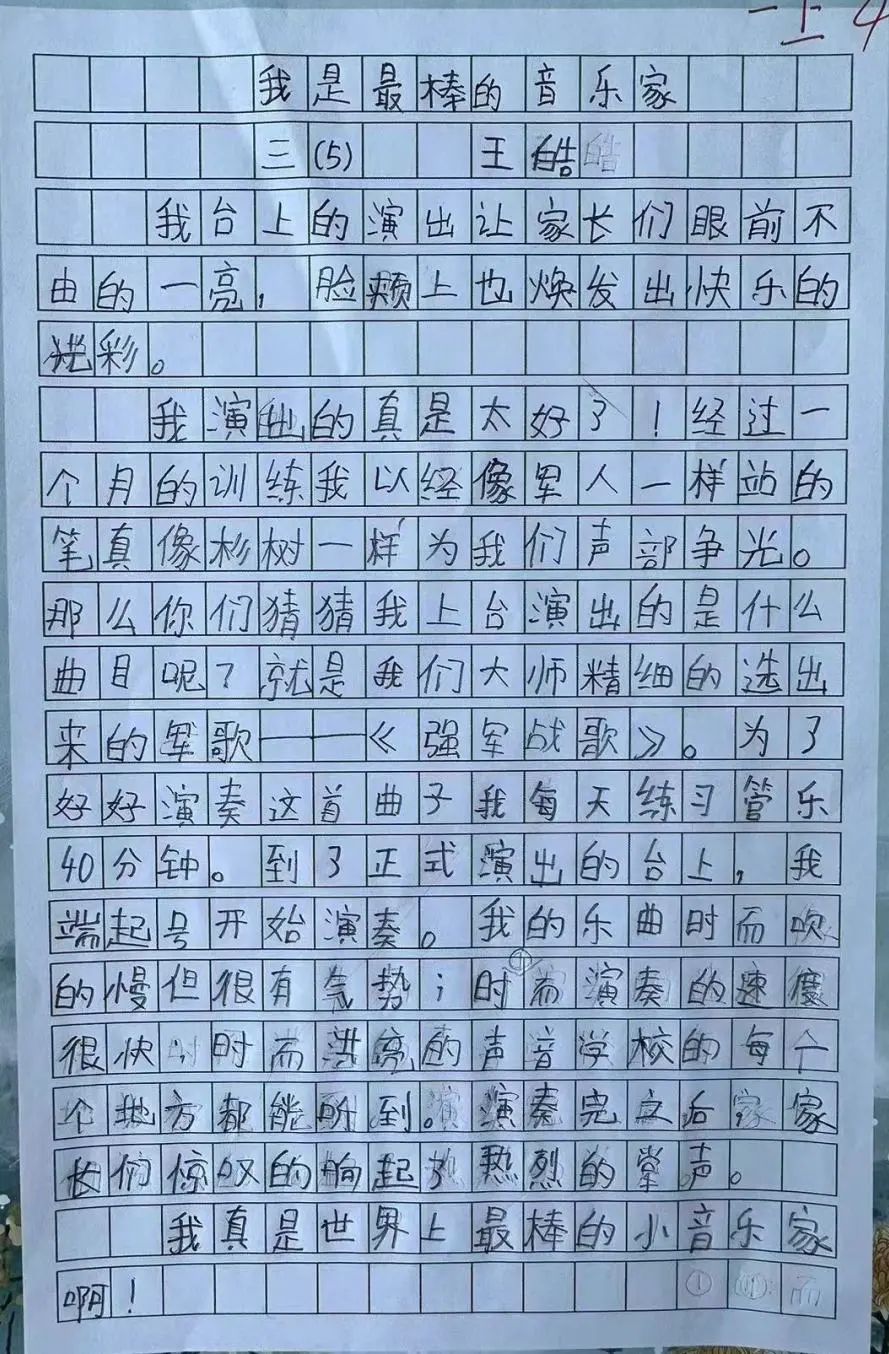 一上4
我是最棒的音乐家
三(5) 王皓
我台上的演出让家长们眼前不
由的一亮，脸颊上也焕发出快乐的
光彩。
我演出的真是太好了！经过一
个月的训练我以经像军人一样站的
笔真像杉树一样为我们声部争光。
那么你们猜猜我上台演出的是什么
曲目呢？就是我们大师精细的选出
来的军歌——《强军战歌》。为了
好好演奏这首曲子我每天练习管乐
40分钟。到了正式演出的台上，我
端起号开始演奏。我的乐曲时而吹
的慢但很有气势；时而演奏的速度
很快；时而洪亮的声音学校的每个
个地方都能听到。演奏完之后家
长们惊叹的响起了热烈的掌声。
我真是世界上最棒的小音乐家
啊！